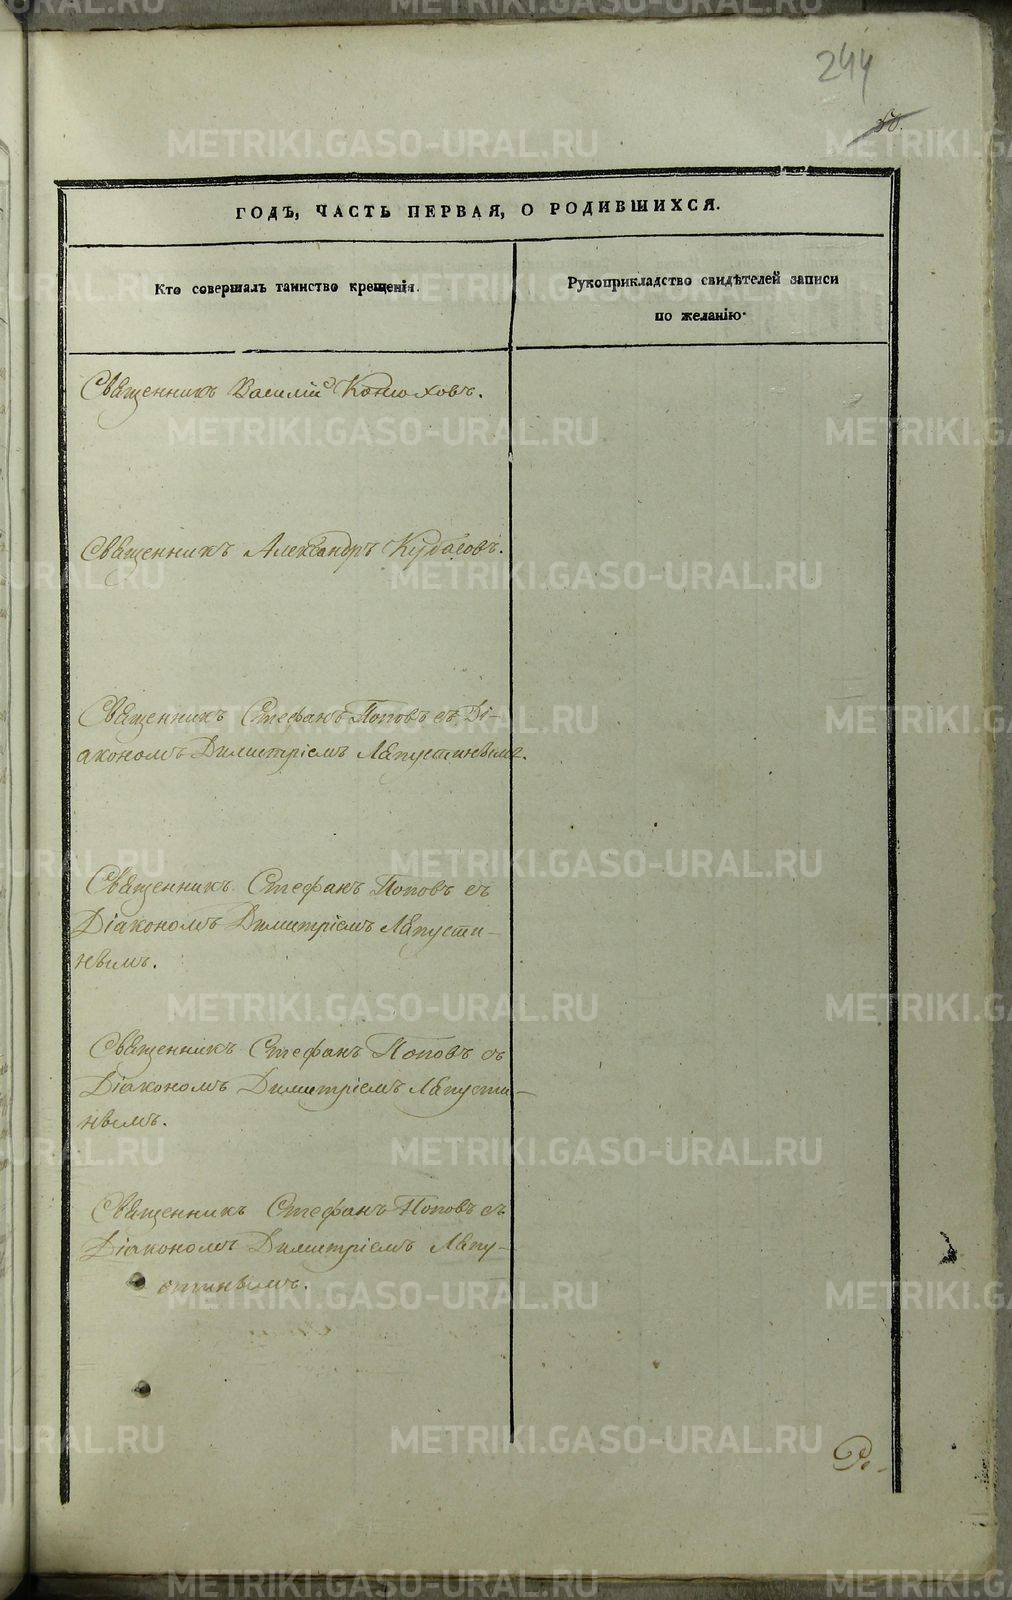 244
60.
ГОДЪ, ЧАСТЬ ПЕРВАЯ, О РОДИВШИХСЯ.
Кто совершалъ таинство крещенія.
Рукоприкладство свидѣтелей записи
по желанію.
Священникъ Василій Конюховъ.
Священникъ Александръ Кудасовъ.
Священникъ Стефанъ Поповъ съ Ді-
акономъ Димитріемъ Лапустинымъ.
Священникъ Стефанъ Поповъ съ
Діакономъ Димитріемъ Лапусти-
нымъ.
Священникъ Стефанъ Поповъ съ
Діакономъ Димитріемъ Лапусти-
нымъ.
Священникъ Стефанъ Поповъ съ
Діакономъ Димитріемъ Лапу-
стинымъ.
Ро-
METRIKI.GASO-URAL.RU